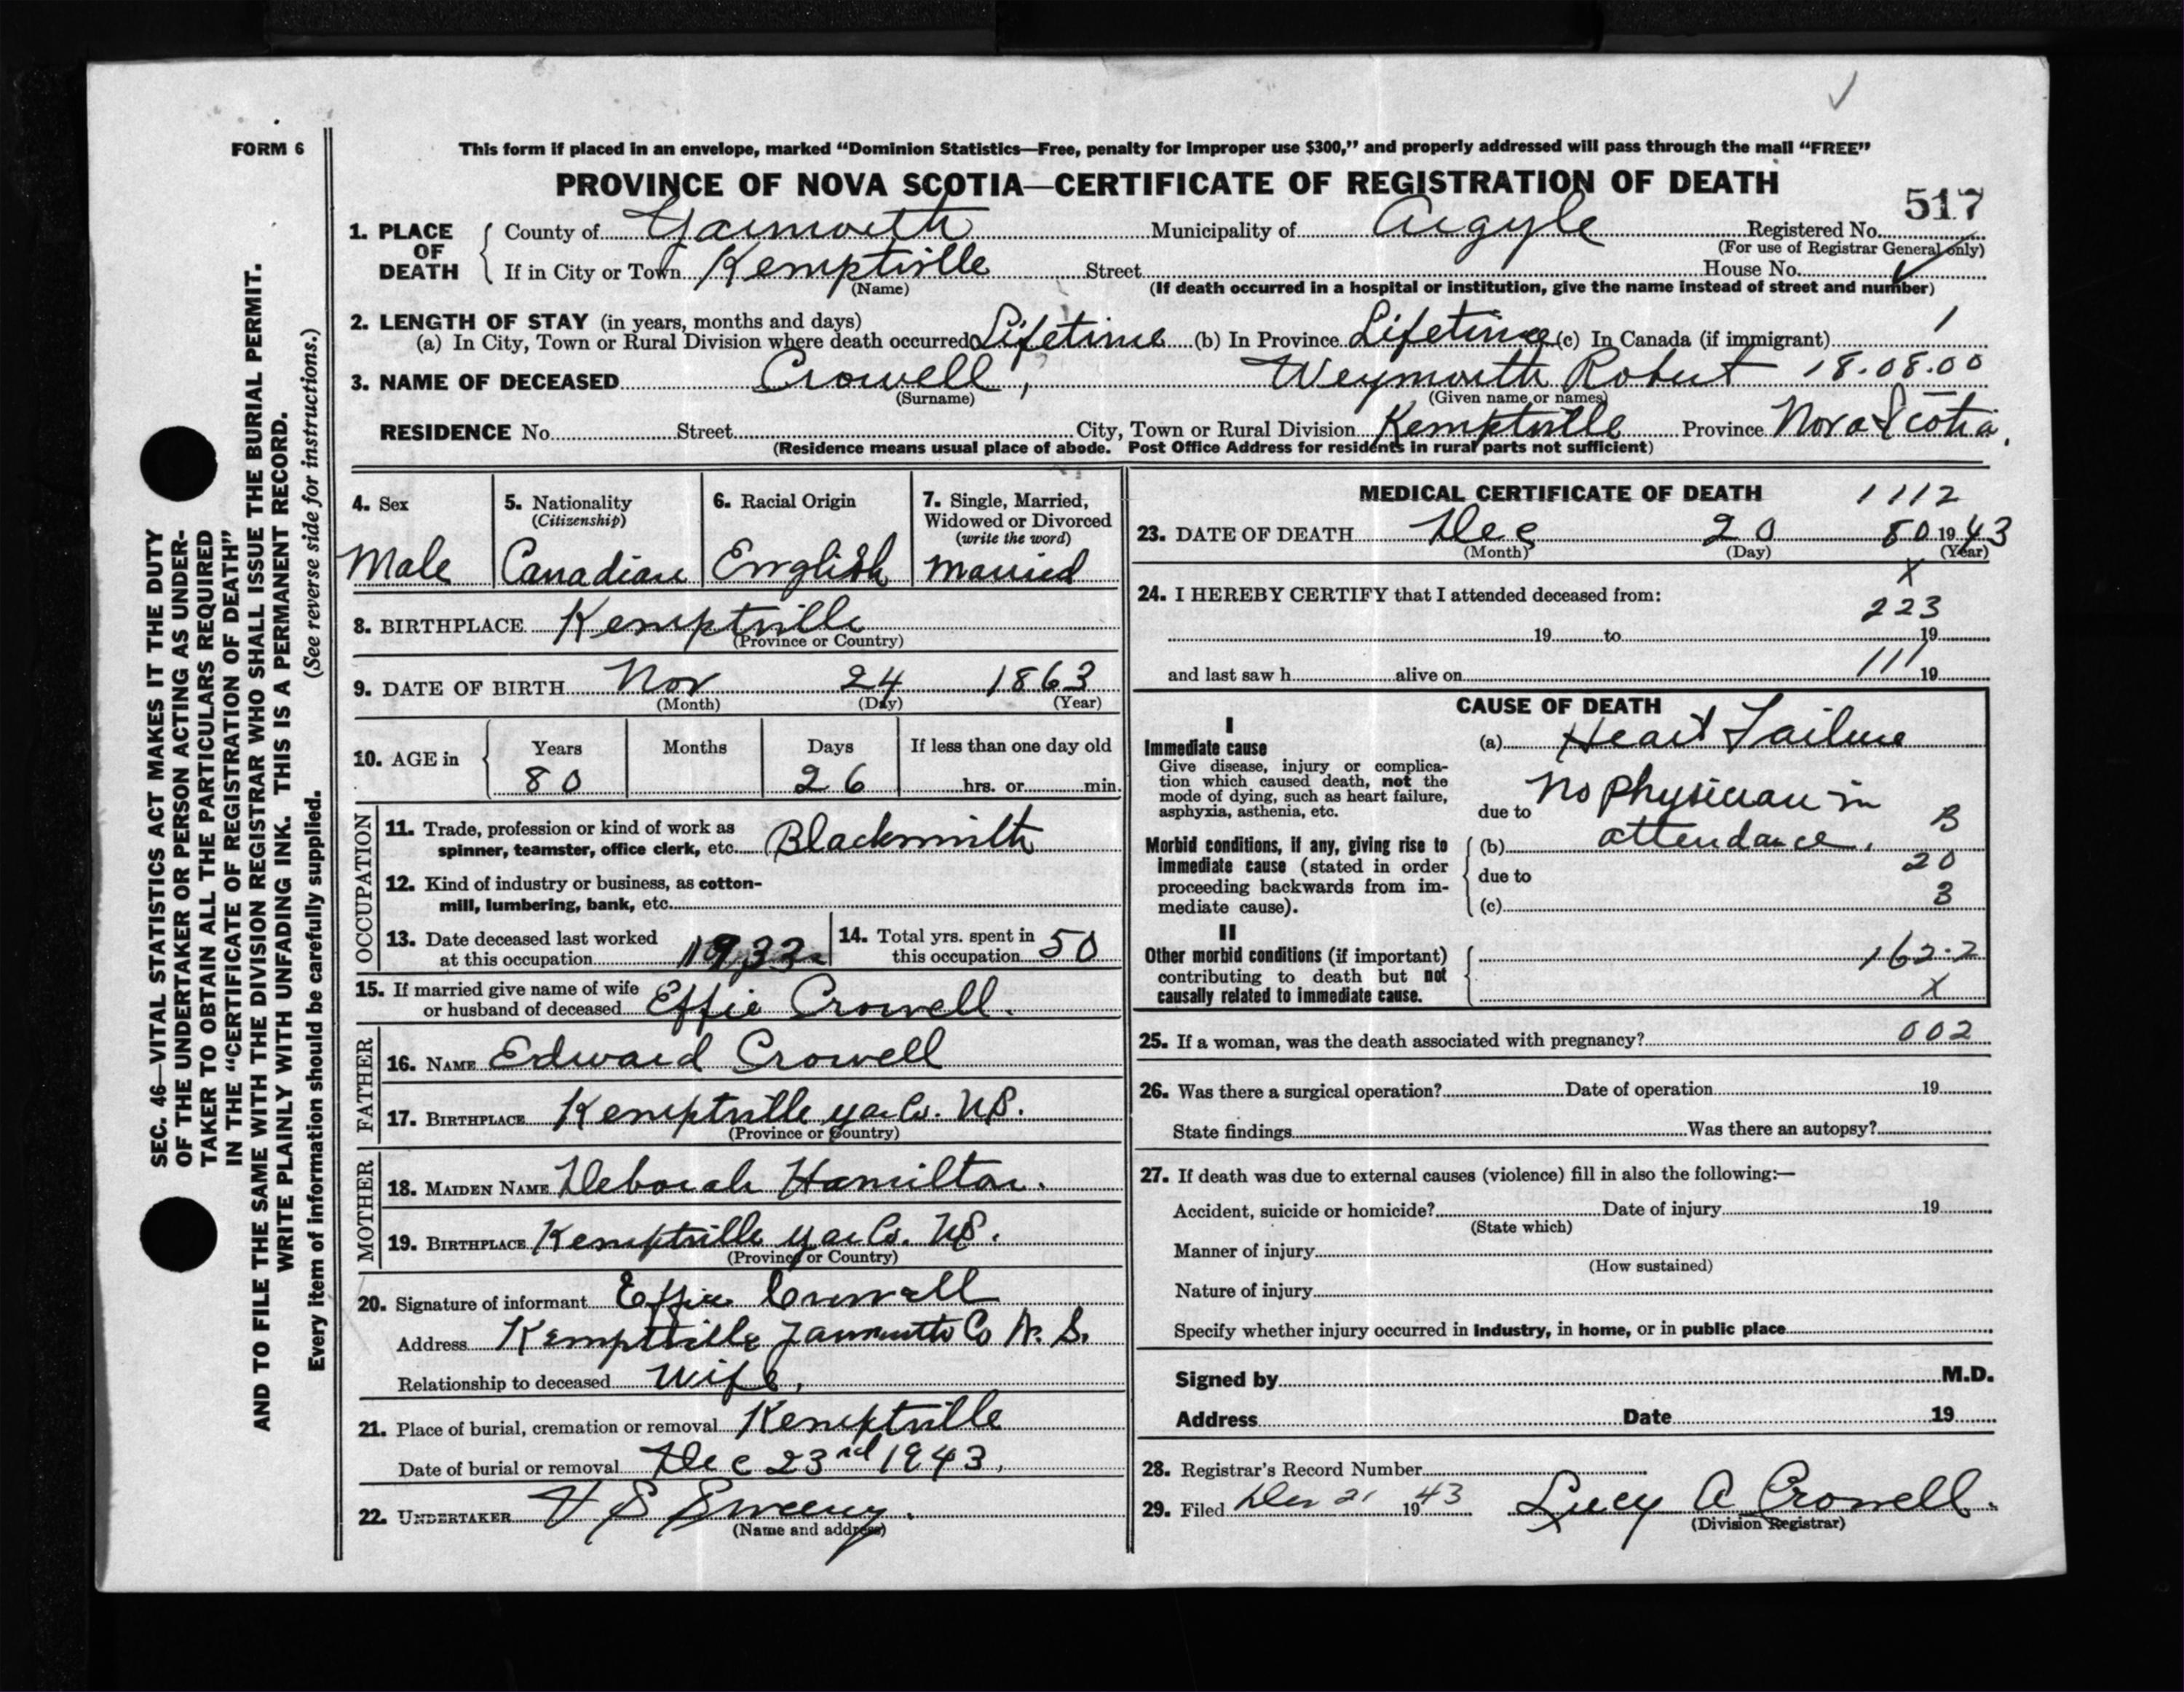 FORM 6
This form if placed in an envelope, marked "Dominion Statistics—Free, penalty for improper use $300," and properly addressed will pass through the mail "FREE"
PROVINCE OF NOVA SCOTIA—CERTIFICATE OF REGISTRATION OF DEATH
517
1. PLACE OF DEATH
County of Yarmouth Municipality of Argyle Registered No.
(For use of Registrar General only)
If in City or Town Kemptville Street House No.
(Name) (If death occurred in a hospital or institution, give the name instead of street and number)
2. LENGTH OF STAY (in years, months and days)
(a) In City, Town or Rural Division where death occurred Lifetime (b) In Province Lifetime (c) In Canada (if immigrant)
3. NAME OF DECEASED Crowell, Weymouth Robert 18.08.00
(Surname) (Given name or names)
RESIDENCE No. Street City, Town or Rural Division Kemptville Province Nova Scotia.
(Residence means usual place of abode. Post Office Address for residents in rural parts not sufficient)
4. Sex
Male
5. Nationality
(Citizenship)
Canadian
6. Racial Origin
English
7. Single, Married,
Widowed or Divorced
(write the word)
Married
8. BIRTHPLACE Kemptville
(Province or Country)
9. DATE OF BIRTH Nov 24 1863
(Month) (Day) (Year)
10. AGE in
Years Months Days If less than one day old
80 26 hrs. or min.
OCCUPATION
11. Trade, profession or kind of work as
spinner, teamster, office clerk, etc. Blacksmith
12. Kind of industry or business, as cotton-
mill, lumbering, bank, etc.
13. Date deceased last worked
at this occupation 1933
14. Total yrs. spent in
this occupation 50
15. If married give name of wife
or husband of deceased Effie Crowell.
FATHER
16. NAME Edward Crowell
17. BIRTHPLACE Kemptville Yar Co. N.S.
(Province or Country)
MOTHER
18. MAIDEN NAME Deborah Hamilton.
19. BIRTHPLACE Kemptville Yar Co. N.S.
(Province or Country)
20. Signature of informant Effie Crowell
Address Kemptville Yarmouth Co N. S.
Relationship to deceased Wife,
21. Place of burial, cremation or removal Kemptville
Date of burial or removal Dec 23rd 1943,
22. UNDERTAKER V S Sweeny.
(Name and address)
MEDICAL CERTIFICATE OF DEATH 1112
23. DATE OF DEATH Dec 20 80 1943
(Month) (Day) (Year)
X
24. I HEREBY CERTIFY that I attended deceased from:
223
19 to 19
and last saw h alive on 111 19
CAUSE OF DEATH
I
Immediate cause
Give disease, injury or complica-
tion which caused death, not the
mode of dying, such as heart failure,
asphyxia, asthenia, etc.
(a) Heart Failure
due to No physician in
Morbid conditions, if any, giving rise to
immediate cause (stated in order
proceeding backwards from im-
mediate cause).
(b) attendance. B
due to 20
(c) 3
II
Other morbid conditions (if important)
contributing to death but not
causally related to immediate cause.
162.2
X
25. If a woman, was the death associated with pregnancy? 002
26. Was there a surgical operation? Date of operation 19
State findings Was there an autopsy?
27. If death was due to external causes (violence) fill in also the following:—
Accident, suicide or homicide? Date of injury 19
(State which)
Manner of injury
(How sustained)
Nature of injury
Specify whether injury occurred in industry, in home, or in public place
Signed by M.D.
Address Date 19
28. Registrar's Record Number
29. Filed Dec 21 1943 Lucy A Crowell.
(Division Registrar)
SEC. 46—VITAL STATISTICS ACT MAKES IT THE DUTY
OF THE UNDERTAKER OR PERSON ACTING AS UNDER-
TAKER TO OBTAIN ALL THE PARTICULARS REQUIRED
IN THE "CERTIFICATE OF REGISTRATION OF DEATH"
AND TO FILE THE SAME WITH THE DIVISION REGISTRAR WHO SHALL ISSUE THE BURIAL PERMIT.
WRITE PLAINLY WITH UNFADING INK. THIS IS A PERMANENT RECORD.
Every item of information should be carefully supplied. (See reverse side for instructions.)